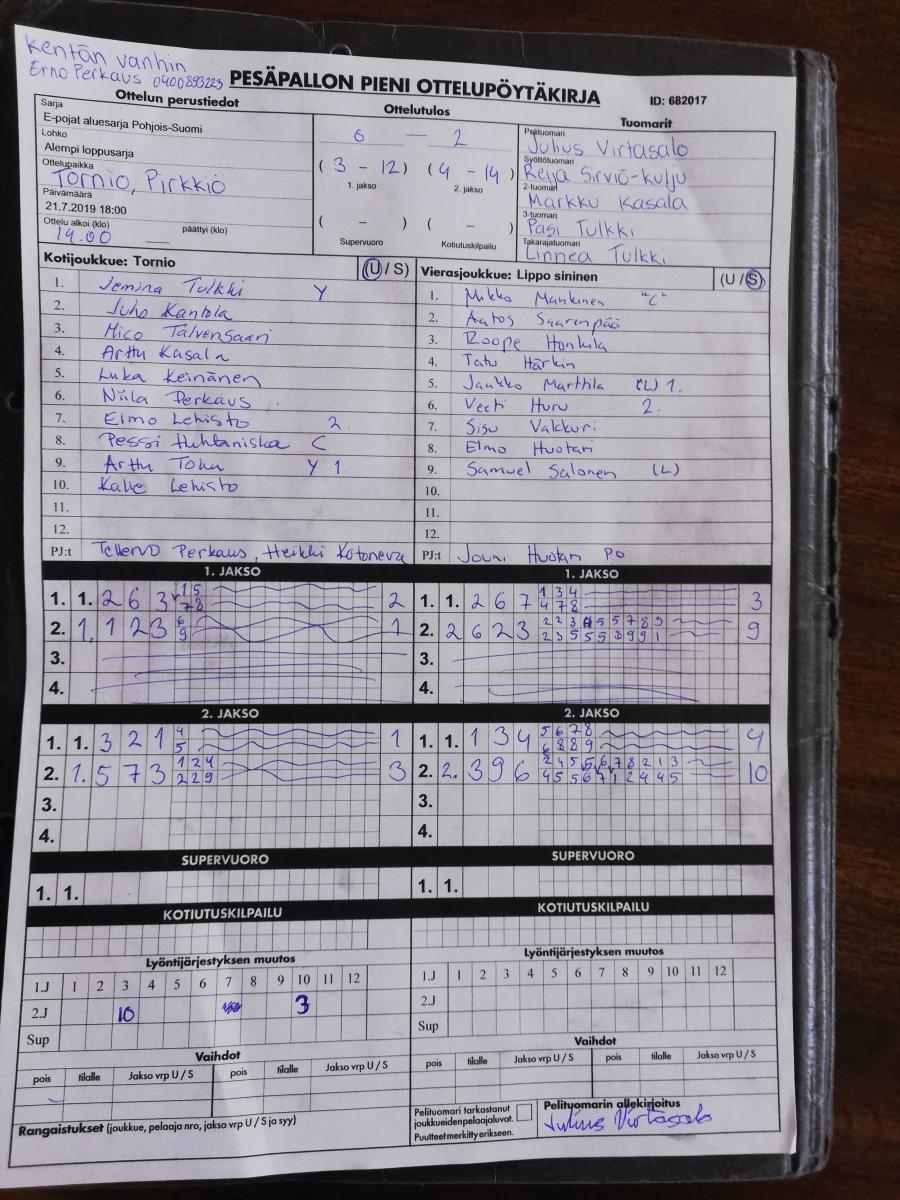 Kentän vanhin
Erno Perkaus 0400893223
PESÄPALLON PIENI OTTELUPÖYTÄKIRJA
ID: 682017
Ottelun perustiedot
Ottelutulos
Tuomarit
Sarja
E-pojat aluesarja Pohjois-Suomi
Lohko
Alempi loppusarja
Ottelupaikka
Tornio, Pirkkiö
Päivämäärä
21.7.2019 18:00
Ottelu alkoi (klo) päättyi (klo)
19.00
6 — 2
( 3 - 12 ) ( 4 - 14 )
1. jakso 2. jakso
( - ) ( - )
Supervuoro Kotiutuskilpailu
Pelituomari
Julius Virtasalo
Syöttötuomari
Reija Sirviö-Kulju
2-tuomari
Markku Kasala
3-tuomari
Pasi Tulkki
Takarajatuomari
Linnea Tulkki
Kotijoukkue: Tornio (U / S)
1. Jemina Tulkki Y
2. Juho Kantola
3. Mico Talvensaari
4. Arttu Kasala
5. Luka Keinänen
6. Niila Perkaus
7. Elmo Lehisto 2.
8. Pessi Huhtaniska C
9. Arttu Y 1.
10. Kalle Lehisto
11.
12.
PJ:t Tellervo Perkaus, Heikki Kotoneva
Vierasjoukkue: Lippo sininen (U / S)
1. Mikko Mankinen "C"
2. Aatos Saarenpää
3. Roope Honkila
4. Tatu Härkin
5. Jaakko Marttila (L) 1.
6. Veeti Huru 2.
7. Sisu Vakkuri
8. Elmo Huotari
9. Samuel Salonen (L)
10.
11.
12.
PJ:t Jouni Huotari PO
1. JAKSO
1. 1. 2 6 3 1 5 2
7 8
2. 1. 1 2 3 6 1
9
3.
4.
1. JAKSO
1. 1. 2 6 7 1 3 4 3
4 7 8
2. 2 6 2 3 9
3.
4.
2. JAKSO
1. 1. 3 2 1 4 1
5
2. 1. 5 7 3 1 2 4 3
2 2 9
3.
4.
2. JAKSO
1. 1. 1 3 4 5 6 7 8 4
6 8 8 9
2. 2. 3 9 6 10
3.
4.
SUPERVUORO
1. 1.
SUPERVUORO
1. 1.
KOTIUTUSKILPAILU
KOTIUTUSKILPAILU
Lyöntijärjestyksen muutos
1.J 1 2 3 4 5 6 7 8 9 10 11 12
2.J 10 3
Sup
Lyöntijärjestyksen muutos
1.J 1 2 3 4 5 6 7 8 9 10 11 12
2.J
Sup
Vaihdot
pois tilalle Jakso vrp U / S pois tilalle Jakso vrp U / S
Vaihdot
pois tilalle Jakso vrp U / S pois tilalle Jakso vrp U / S
Rangaistukset (joukkue, pelaaja nro, jakso vrp U / S ja syy)
Pelituomari tarkastanut
joukkueiden pelaajaluvat.
Puutteet merkitty erikseen.
Pelituomarin allekirjoitus
Julius Virtasalo